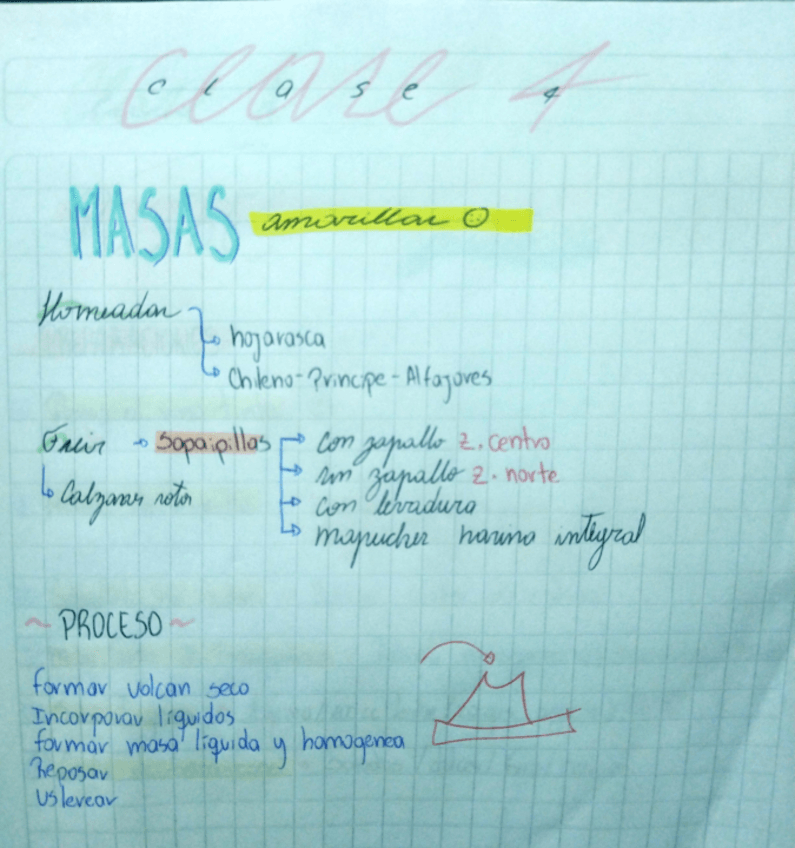 clase 4
MASAS amarillas
Horneadas
hojarasca
Chileno-Principe-Alfajores
Freir sopaipillas con zapallo z. centro
sin zapallo z. norte
Calzones rotos con levadura
mapuches harina integral
~ PROCESO ~
formar volcan seco
Incorporar líquidos
formar masa líquida y homogenea
Reposar
Uslerear